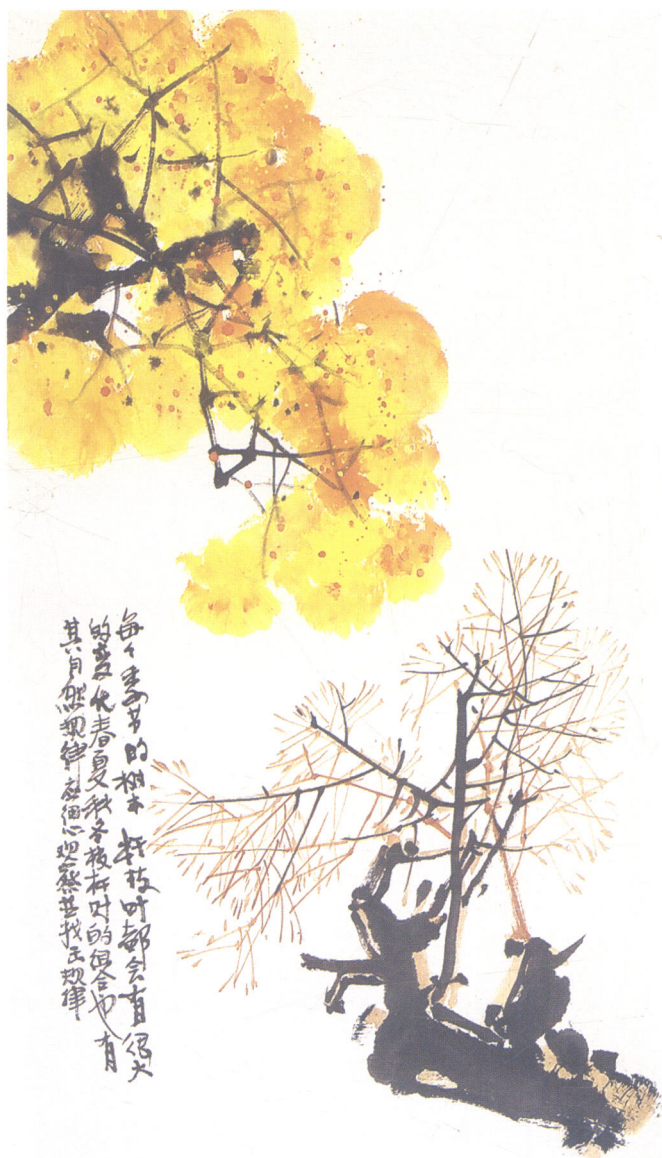 每个季节的树木 料枝叶都会有很大
的变化春夏秋冬枝杆对的组合也有
其自然规律应细心观察并找出规律